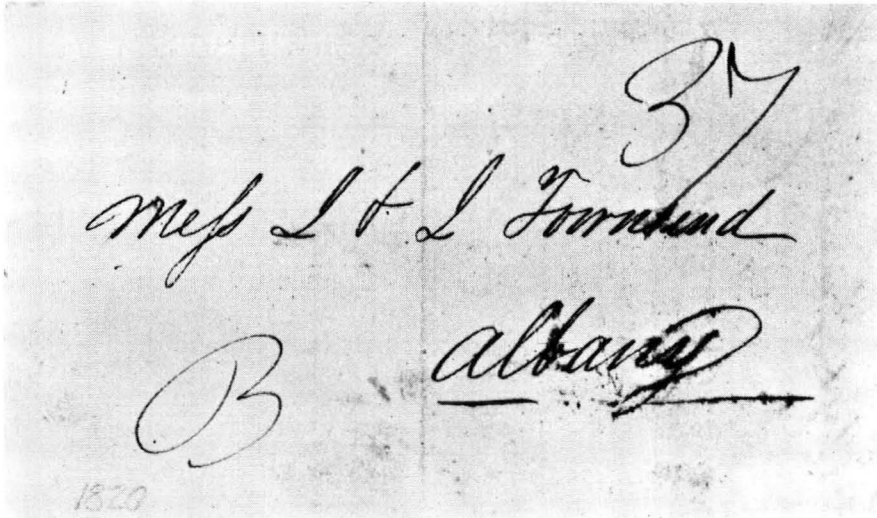 37
Mess I & I Townsend
Albany
B
1820